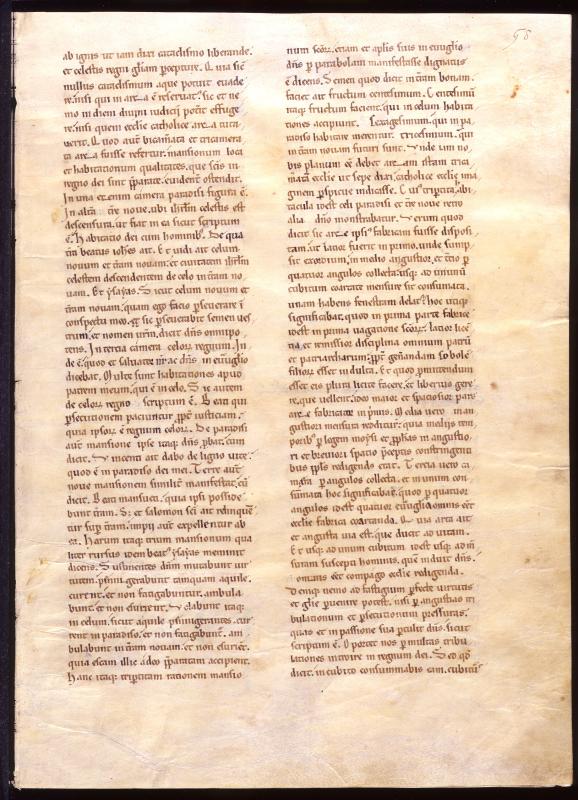 ab ignis ut iam dixi cataclismo liberande.
et celestis regni gl̃iam p̱cepture. Q uia sic̃
nullus cataclismum aque potuit euade
re. nisi qui in arca ẽ reseruatˀ. sic et ne
mo in diem diuini iudicij pot̃it effuge
re. nisi quem ecclie catholice arca tuta
uerit. Q uod aut̃ bicam̃ata et tricamera
ta arca fuisse refertur. mansionum loca
et habitationum qualitates. que sc̃is in
regno dei sunt p̃parate. euident̃ ostendit.
In una etenim camera paradisi figura ẽ.
In alt̃a t̃re noue. ubi ilrl̃m celestis est
descensura. ut fiat in ea sicut scriptum
ẽ. h abitatio dei cum hominibꝰ. De qua
t̃ra beatus ioh̃es ait. E t uidi ait celum
nouum et t̃ram nouam. et ciuitatem ilrl̃m
celestem descendentem de celo in t̃ram no
uam. E t ysayas. S icut celum nouum et
t̃ram nouam. quam ego facio p̱seuerare ĩ
conspectu meo. et̃ sic p̱seuerabit semen ues
trum. et nomen urm̃. dicit dñs omnipo
tens. In tercia camera celorꝝ regnum. In
de ẽ. quod et saluator nr̃ ac dñs in eu̅u̅glio
dicebat. M ulte sunt habitationes apud
patrem meum. qui ẽ in celo. S ic autem
de celorꝝ regno scriptum ẽ. B eati qui
p̱secutionem paciuntur. p̱pt̃ iusticiam.
quia ipsorꝝ ẽ regnum celorꝝ. De paradisi
aut̃ mansione ipse itaqꝫ dñs p̱bat. cum
dicit. V incenti aut̃ dabo de ligno uite.
quod ẽ in paradiso dei mei. T erre aut̃
noue mansionem similit̃ manifestat. cũ
dicit. B eati mansueti. quia ipsi posside
bunt t̃ram. S; et salomon sc̃i ait relinque̅
tur sup̱ t̃ram. impij aut̃ expellentur ab
ea. harum itaqꝫ trium mansionum qua
liter rursus idem beatꝰ ysayas meminit
dicens. S ustinentes dñm mutabunt uir
tutem. p̱sumigerabunt tamquam aquile.
curent. et non fatigabuntur. ambula
bunt. et non esurient. V olabunt itaqꝫ
in celum. sicut aquile p̱sumigerantes. cur
rent in paradiso. et non fatigabunt̃. am
bulabunt in t̃ram nouam. et non esurie̅t.
quia escam illic a deo p̃paratam accipient.
h anc itaqꝫ trip̱titam rationem mansio
num sc̃orꝝ. etiam et ap̱lis suis in eu̅u̅glio
dñs p̱ parabolam manifestasse dignatus
ẽ dicens. S emen quod dicit in t̃ram bonam.
faciet ait fructum centesimum. C entesimũ
itaqꝫ fructum facient. qui in celum habita
tiones accipiunt. S exagesimum. qui in pa
radiso habitare merentur. tricesimum. qui
in t̃ram nouam futuri sunt. V nde iam no
bis planum ẽẽ debet arcam istam trica
m̃atã ecclie ut sepe dixi. catholice ecclie ima
ginem p̱spicue indicasse. C uiꝰ trip̱tita habi
tacula idest celi paradisi et t̃re noue retro
alia dño monstrabatur. V erum quod
dicit sic arce ipsiꝰ fabricam fuisse disposi
tam. ut latior fuerit in primo. unde sump
sit exordium. in medio angustior. et t̃cio p̱
quatuor angulos collecta. usqꝫ ad unum
cubitum coartate mensure sit consumata.
unam habens fenestram delat̃. hoc utiqꝫ
significabat. quod in prima parte fabrice
idest in prima uagatione sc̃orꝝ. latior lice̅
tia. et remissior disciplina omnium patrũ
et patriarcharum. p̱pt̃ gen̅andam sobole̅
filiorꝝ esset indulta. E t quod p̱mittendum
esset eis plura licite facere. et liberius gere
re. que uellent. ideo maior et spaciosior pars
arce fabricatur in p̱mis. M edia uero in an
gustiori mensura redditur. quia malijs tem
poribꝰ p̱ legem moysi et p̱phetas in angustio
ri et breuiori spatio p̱ceptis constringenti
bus pp̱ls redigendus erat. T ercia uero ca
m̃ata p̱ angulos collecta. et in unum con
sũmata hoc significabat. quod p̱ quatuor
angulos idest quatuor eu̅u̅glia omnis eẽt
ecclie fabrica coartanda. Q uia arta ait
et angusta uia est. que ducit ad uitam.
E t usqꝫ ad unum cubitum idest usqꝫ ad m̃
suram suscepti hominis. que̅ induit dñs.
omnis eẽt compago ecclie redigenda.
D enique nemo ad fastigium p̱fecte uirtutis
et gl̃ie p̱uenire potest. nisi p̱ angustias tri
bulationum et p̱secutionum pressuras.
quas et in passione sua p̱tulit dñs. sicut
scriptum ẽ. O portet nos p̱ multas tribu
lationes introire in regnum dei. S ed qđ
dicit in cubito consummabis eam. cubitũ